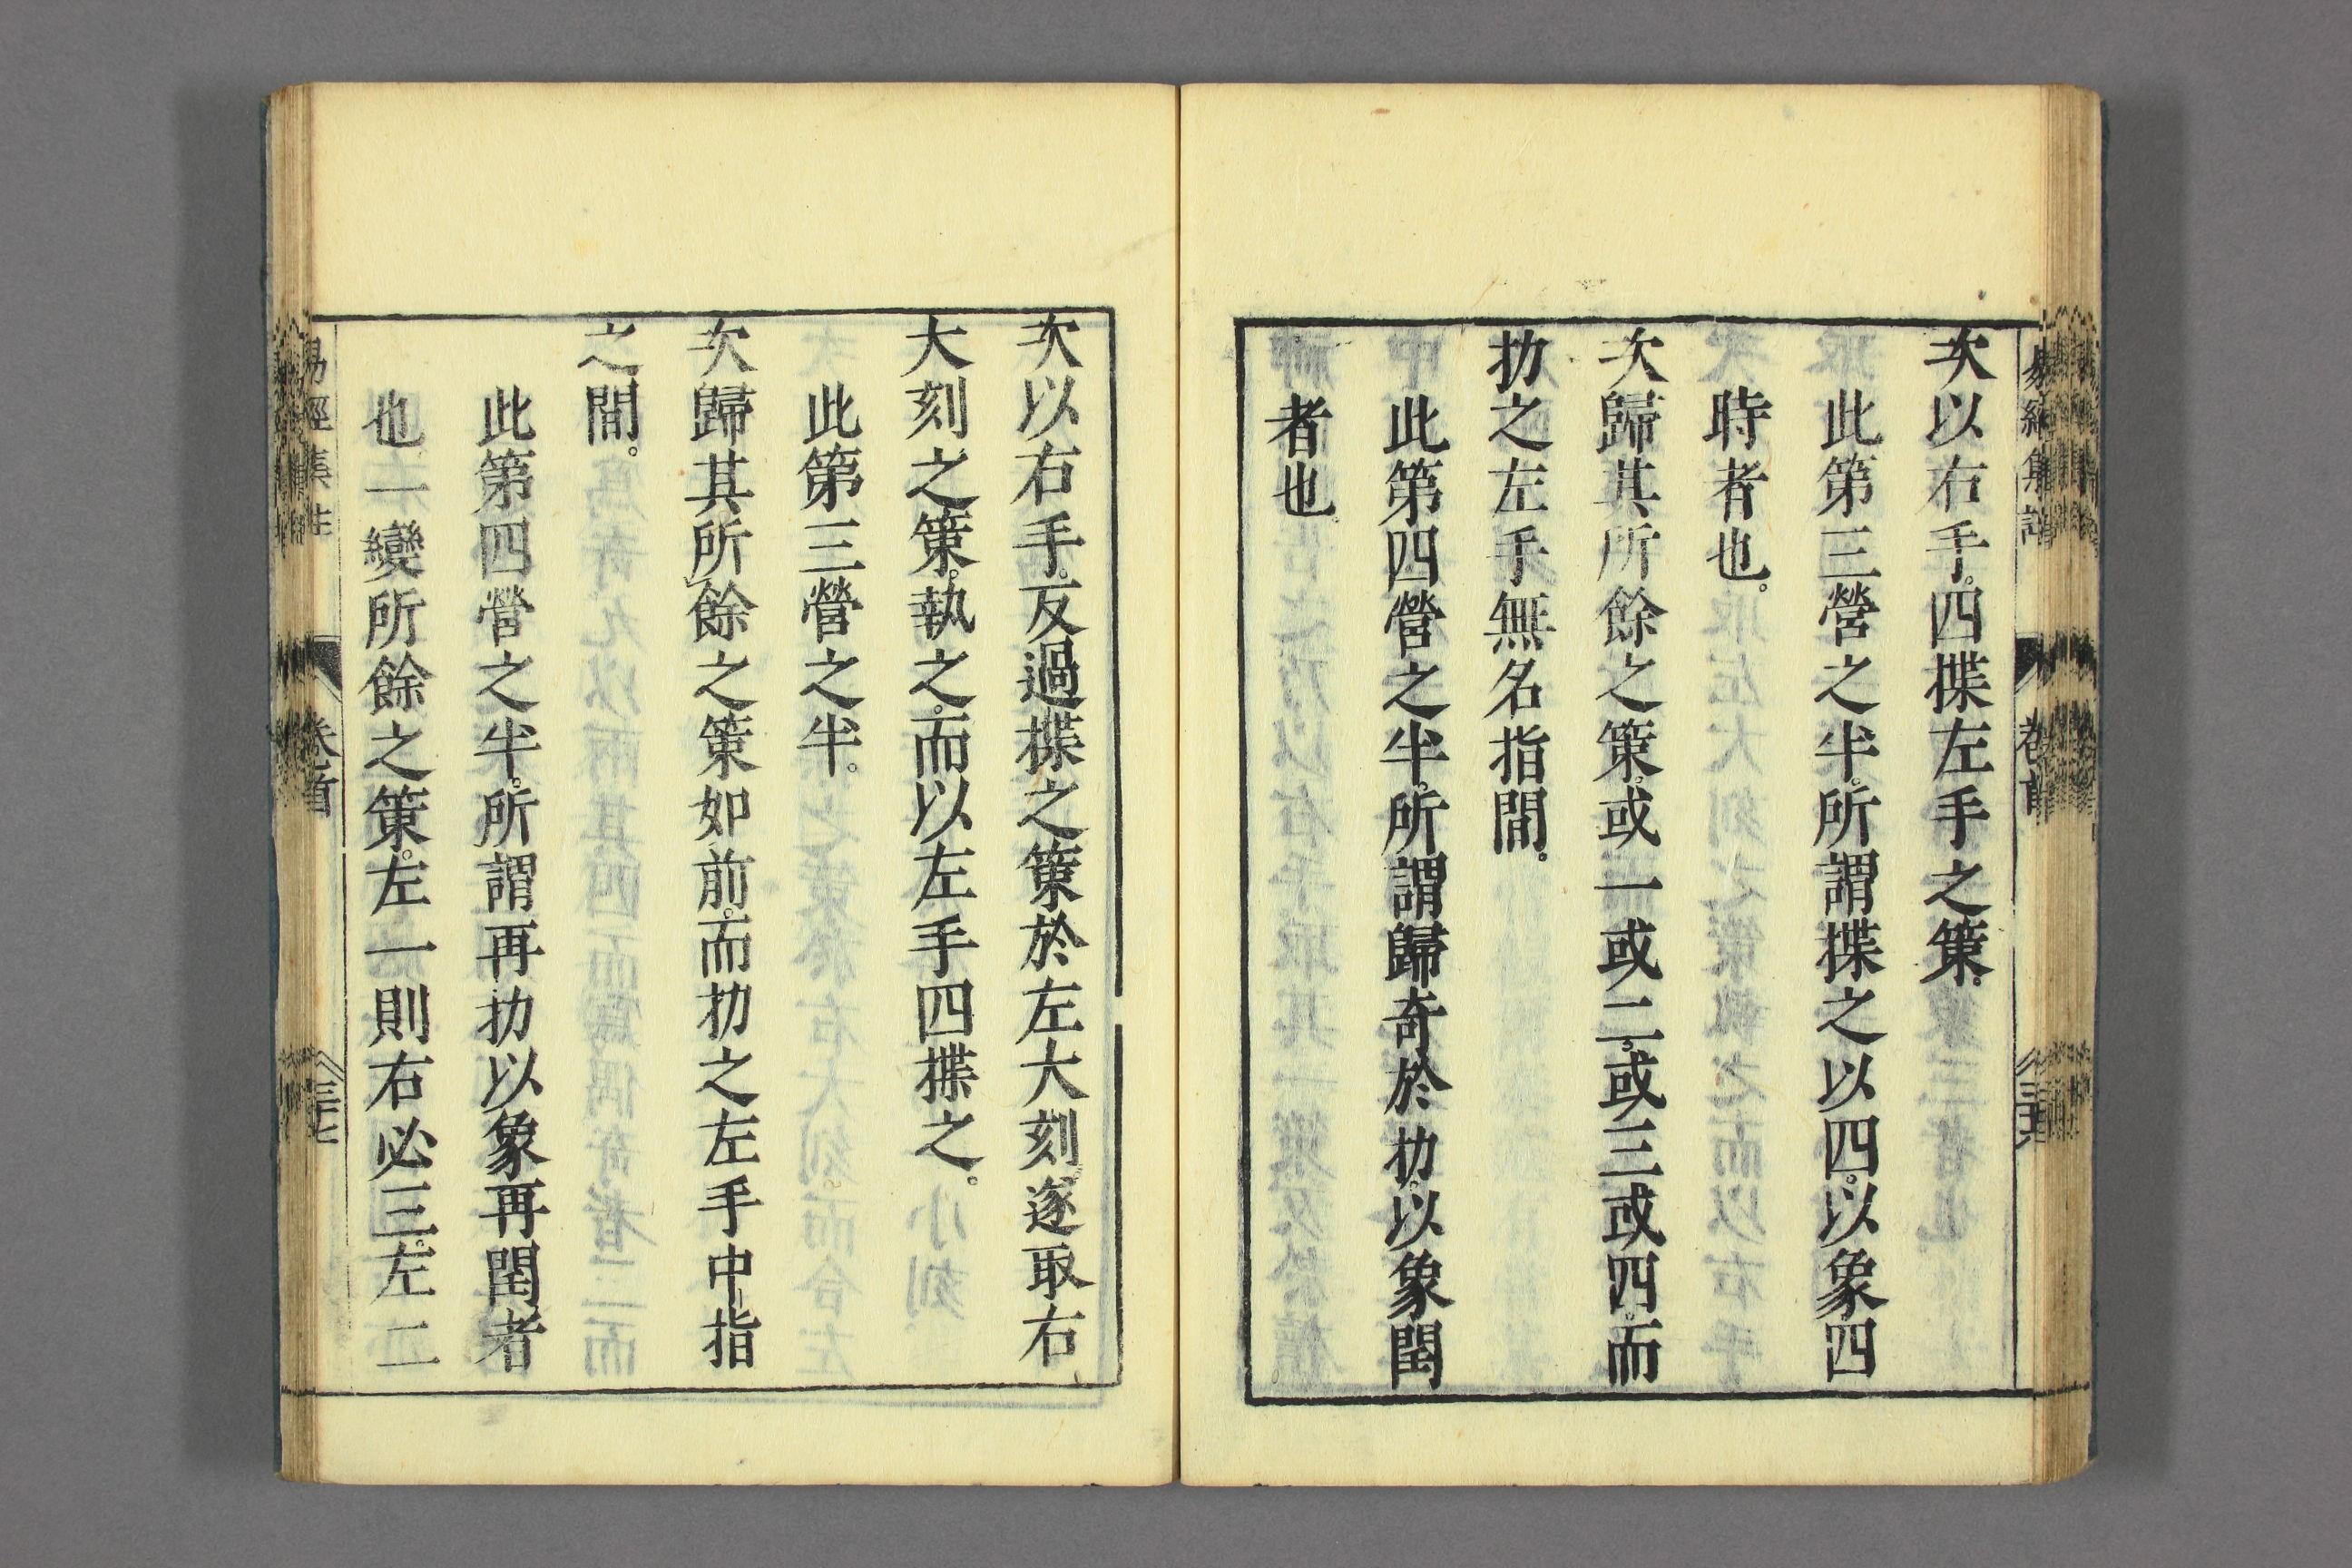 次以右手。四揲左手之策。
此第三營之半。所謂揲之以四。以象四
時者也。
次歸其所餘之策。或一或二。或三或四。而
扐之左手無名指間。
此第四營之半。所謂歸奇於扐。以象閏
者也
次以右手。反過揲之策於左大刻。逐取右
大刻之策。執之。而以左手四揲之。
此第三營之半。
次歸其所餘之策如前。而扐之左手中指
之間。
此第四營之半。所謂再扐以象再閏者
也一變所餘之策。左一則右必三。左二
易經集註
卷首
三十七